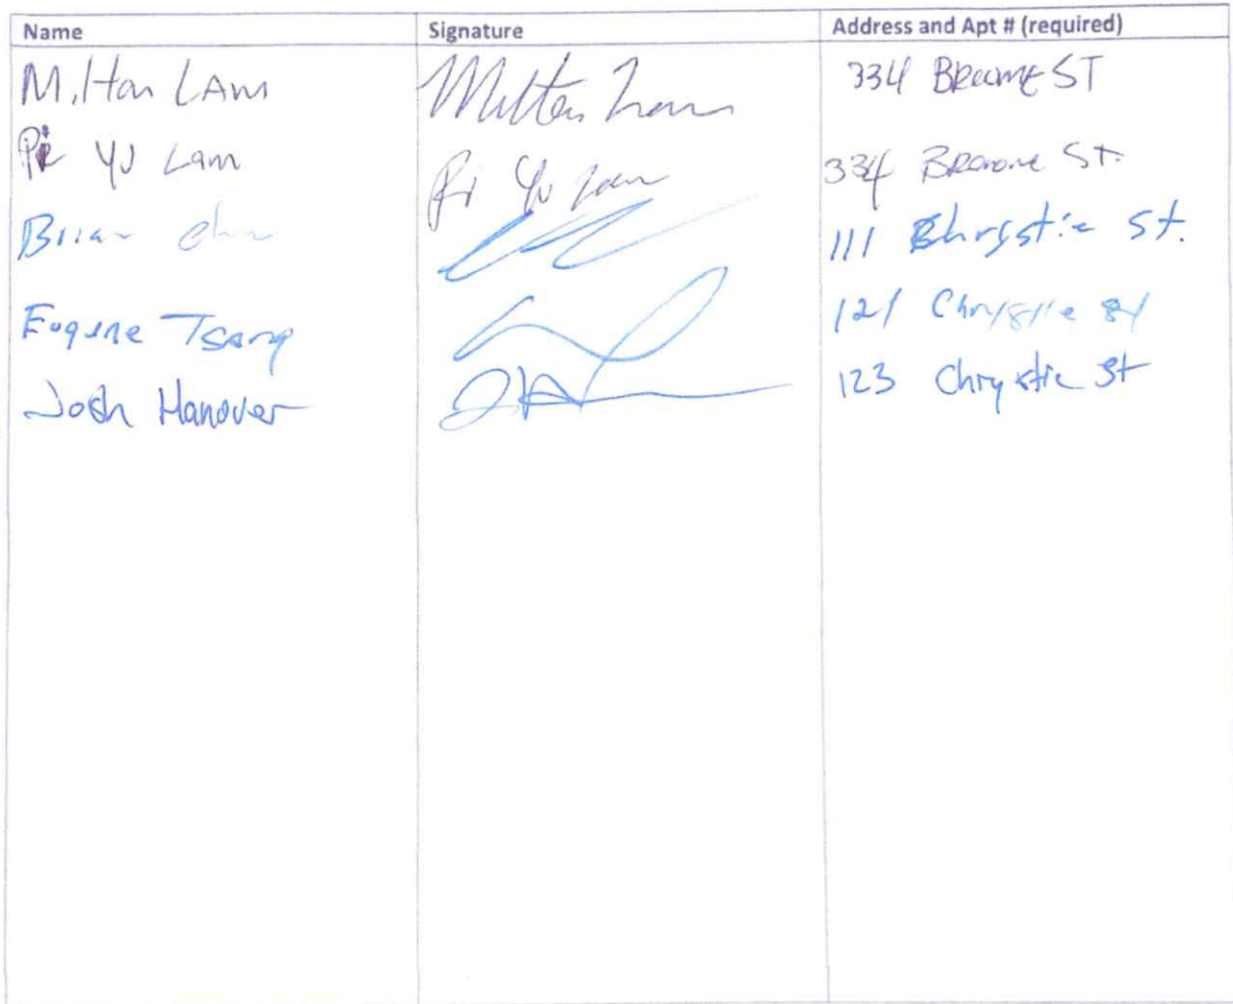 Name Signature Address and Apt # (required)
Milton LAM Milton Lam 334 Broome ST
Pi YU Lam Pi Yu Lam 334 Broome St.
Brian 111 Chrystie St.
Eugene Tsang 121 Chrystie St
Josh Hanover JH 123 Chrystie St